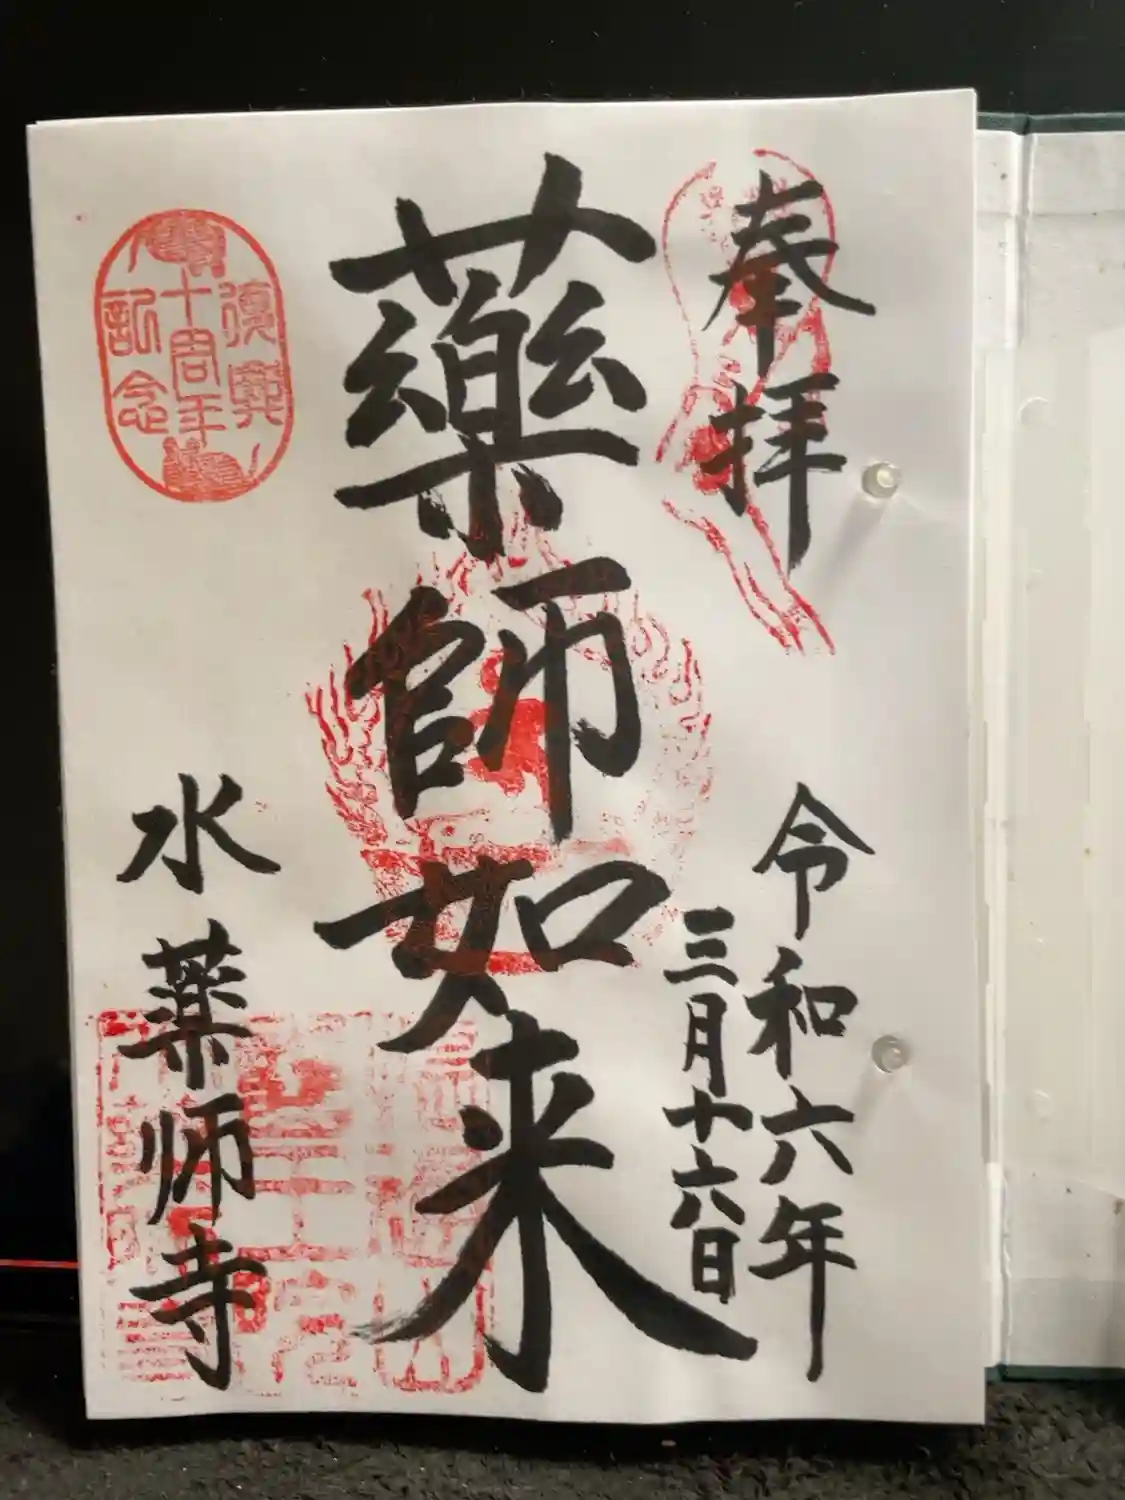 奉拝
令和六年
三月十六日
藥師如来
復興
十周年
記念
水薬师寺